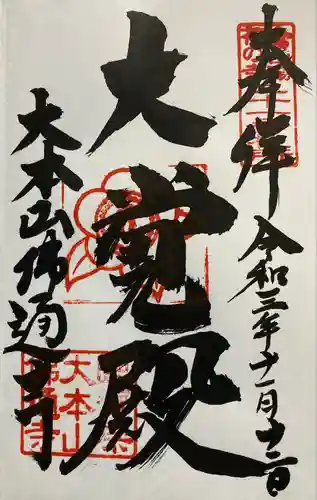 奉拝
令和三年十一月十二日
大覚殿
大本山佛通寺
大本山
佛通寺